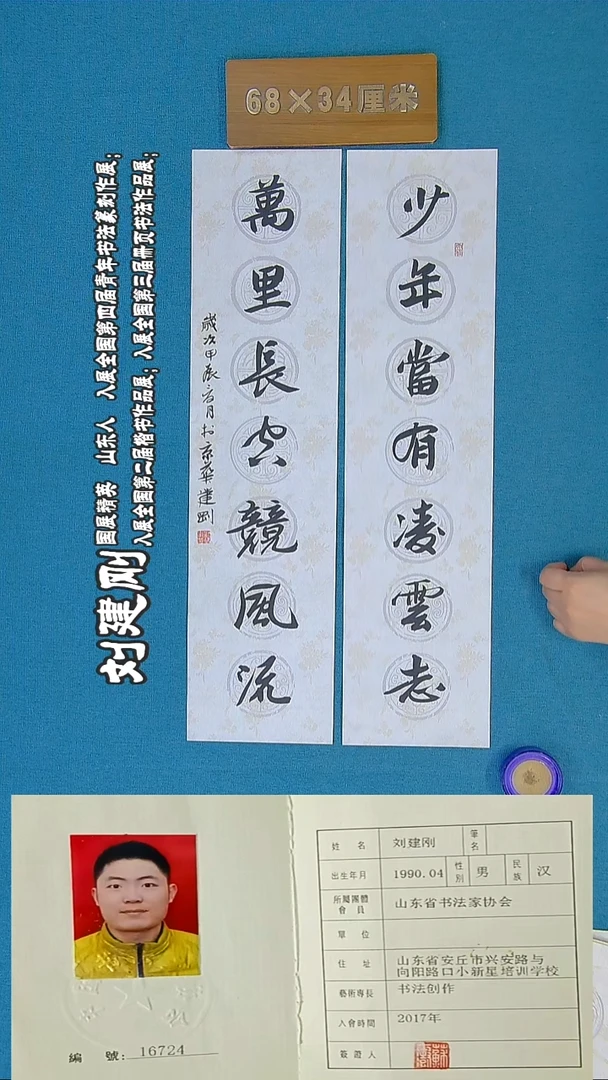 68×34厘米
少年當有凌雲志
萬里長空競風流
歲次甲辰
月於京華建剛
刘建刚
国展精英 山东人 入展全国第四届青年书法篆刻作展；
入展全国第二届楷书作品展；入展全国第三届册页书法作品展；
姓名 刘建刚 筆名
出生年月 1990.04 性別 男 民族 汉
所屬團體會員 山东省书法家协会
單位
住址 山东省安丘市兴安路与
向阳路口小新星培训学校
藝術專長 书法创作
入會時間 2017年
簽證人
編號：16724